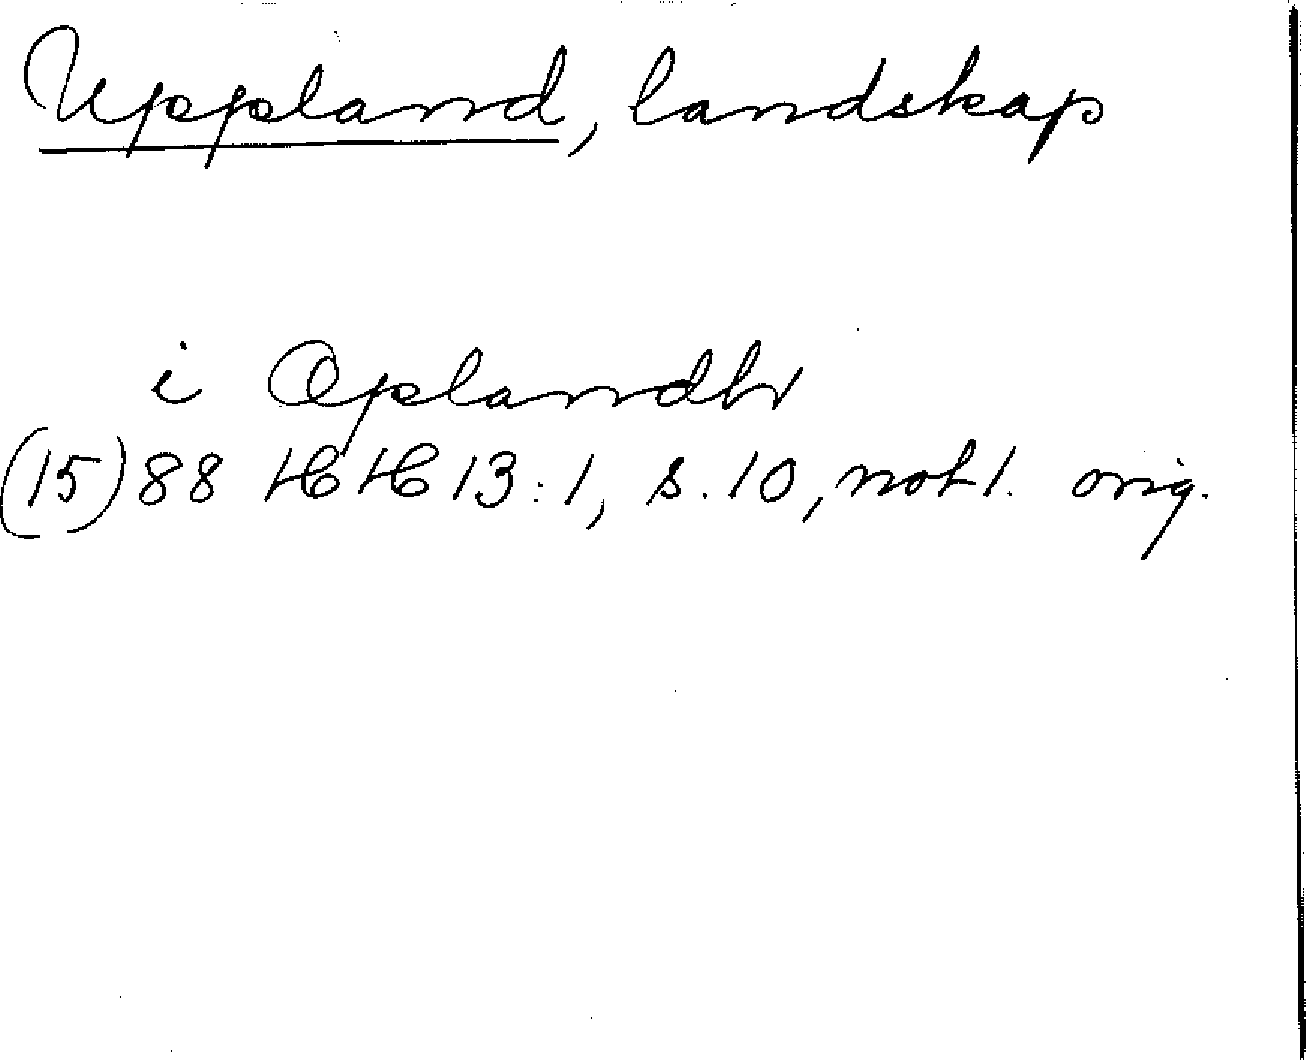 Uppland, landskap
i Oplandh
(15)88 HH 13:1, s. 10, not 1. orig.